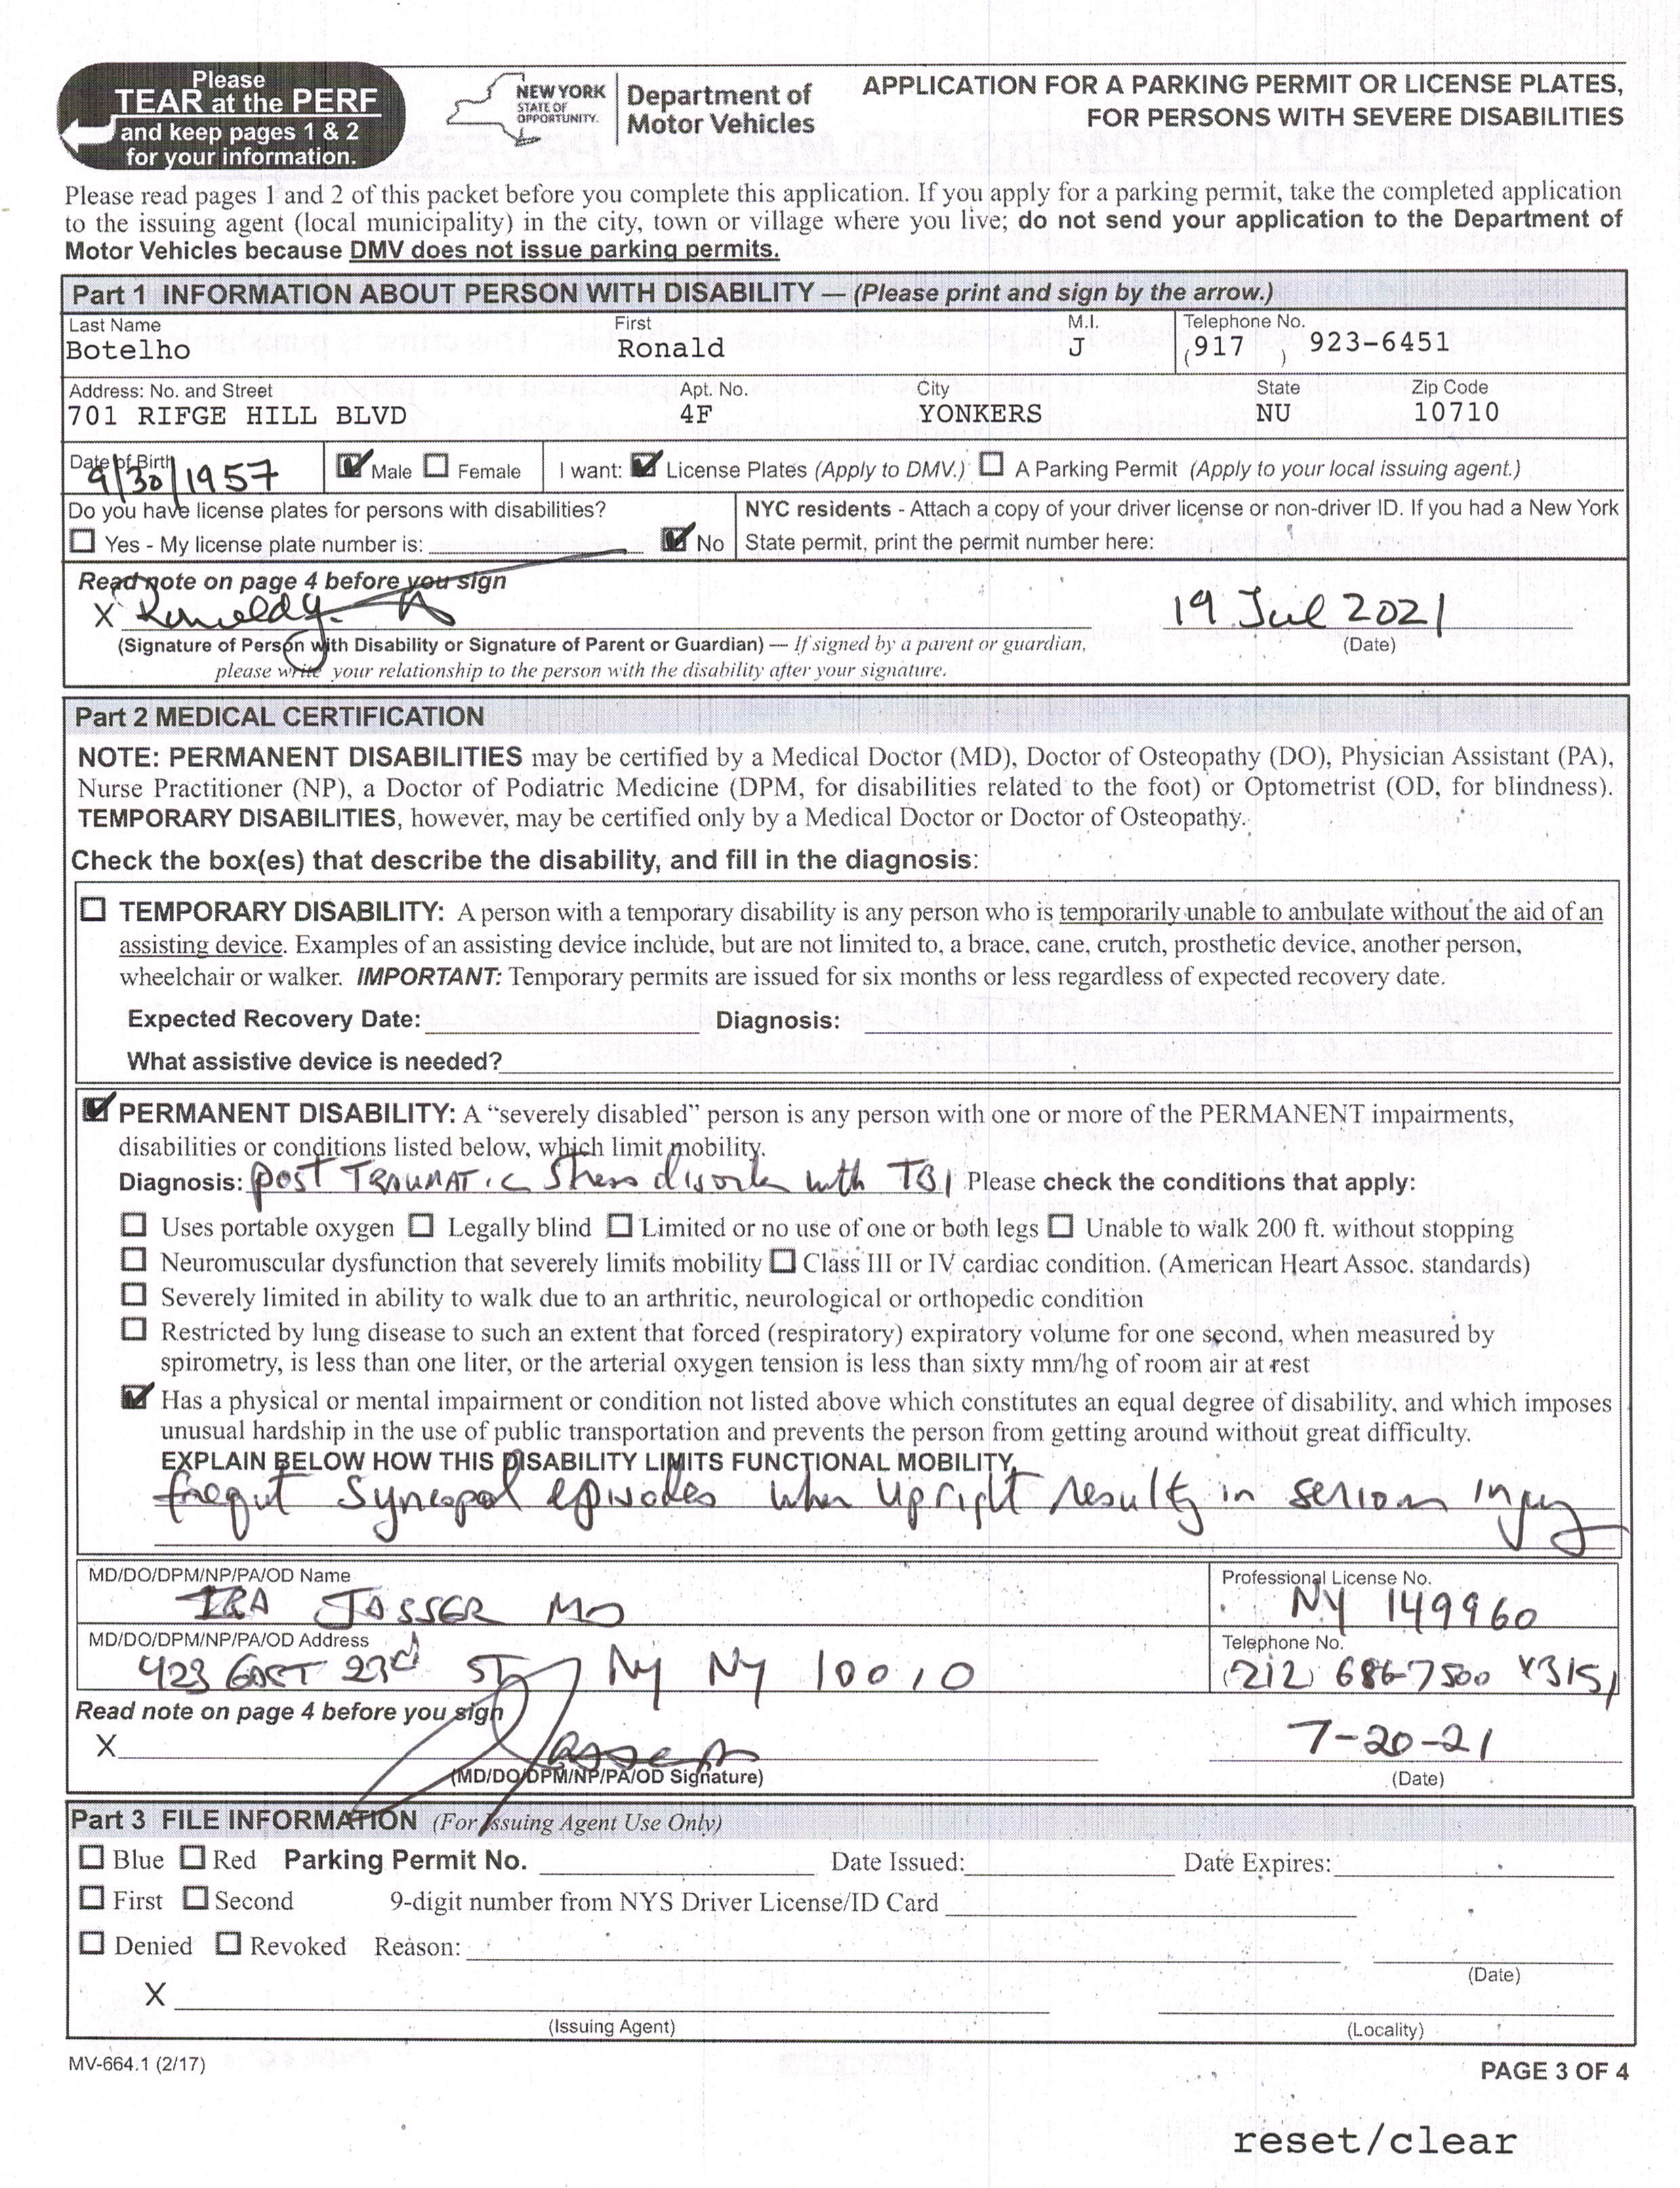 Please
TEAR at the PERF
and keep pages 1 & 2
for your information.
NEW YORK
STATE OF
OPPORTUNITY.
Department of
Motor Vehicles
APPLICATION FOR A PARKING PERMIT OR LICENSE PLATES,
FOR PERSONS WITH SEVERE DISABILITIES
Please read pages 1 and 2 of this packet before you complete this application. If you apply for a parking permit, take the completed application
to the issuing agent (local municipality) in the city, town or village where you live; do not send your application to the Department of
Motor Vehicles because DMV does not issue parking permits.
Part 1 INFORMATION ABOUT PERSON WITH DISABILITY — (Please print and sign by the arrow.)
Last Name First M.I. Telephone No.
Botelho Ronald J (917 ) 923-6451
Address: No. and Street Apt. No. City State Zip Code
701 RIFGE HILL BLVD 4F YONKERS NU 10710
Date of Birth
9/30/1957 Male Female I want: License Plates (Apply to DMV.) A Parking Permit (Apply to your local issuing agent.)
Do you have license plates for persons with disabilities? NYC residents - Attach a copy of your driver license or non-driver ID. If you had a New York
Yes - My license plate number is: No State permit, print the permit number here:
Read note on page 4 before you sign
X 19 Jul 2021
(Signature of Person with Disability or Signature of Parent or Guardian) — If signed by a parent or guardian, (Date)
please write your relationship to the person with the disability after your signature.
Part 2 MEDICAL CERTIFICATION
NOTE: PERMANENT DISABILITIES may be certified by a Medical Doctor (MD), Doctor of Osteopathy (DO), Physician Assistant (PA),
Nurse Practitioner (NP), a Doctor of Podiatric Medicine (DPM, for disabilities related to the foot) or Optometrist (OD, for blindness).
TEMPORARY DISABILITIES, however, may be certified only by a Medical Doctor or Doctor of Osteopathy.
Check the box(es) that describe the disability, and fill in the diagnosis:
TEMPORARY DISABILITY: A person with a temporary disability is any person who is temporarily unable to ambulate without the aid of an
assisting device. Examples of an assisting device include, but are not limited to, a brace, cane, crutch, prosthetic device, another person,
wheelchair or walker. IMPORTANT: Temporary permits are issued for six months or less regardless of expected recovery date.
Expected Recovery Date: Diagnosis:
What assistive device is needed?
PERMANENT DISABILITY: A “severely disabled” person is any person with one or more of the PERMANENT impairments,
disabilities or conditions listed below, which limit mobility.
Diagnosis: post TRAUMATIC Stress disorder with TBI Please check the conditions that apply:
Uses portable oxygen Legally blind Limited or no use of one or both legs Unable to walk 200 ft. without stopping
Neuromuscular dysfunction that severely limits mobility Class III or IV cardiac condition. (American Heart Assoc. standards)
Severely limited in ability to walk due to an arthritic, neurological or orthopedic condition
Restricted by lung disease to such an extent that forced (respiratory) expiratory volume for one second, when measured by
spirometry, is less than one liter, or the arterial oxygen tension is less than sixty mm/hg of room air at rest
Has a physical or mental impairment or condition not listed above which constitutes an equal degree of disability, and which imposes
unusual hardship in the use of public transportation and prevents the person from getting around without great difficulty.
EXPLAIN BELOW HOW THIS DISABILITY LIMITS FUNCTIONAL MOBILITY.
frequt Syncopal episodes when upright resulty in serious injury
MD/DO/DPM/NP/PA/OD Name Professional License No.
IRA JASSER MD NY 149960
MD/DO/DPM/NP/PA/OD Address Telephone No.
423 EAST 23rd ST NY NY 10010 (212) 686-7500 x3151
Read note on page 4 before you sign
X 7-20-21
(MD/DO/DPM/NP/PA/OD Signature) (Date)
Part 3 FILE INFORMATION (For Issuing Agent Use Only)
Blue Red Parking Permit No. Date Issued: Date Expires:
First Second 9-digit number from NYS Driver License/ID Card
Denied Revoked Reason:
(Date)
X
(Issuing Agent) (Locality)
MV-664.1 (2/17) PAGE 3 OF 4
reset/clear